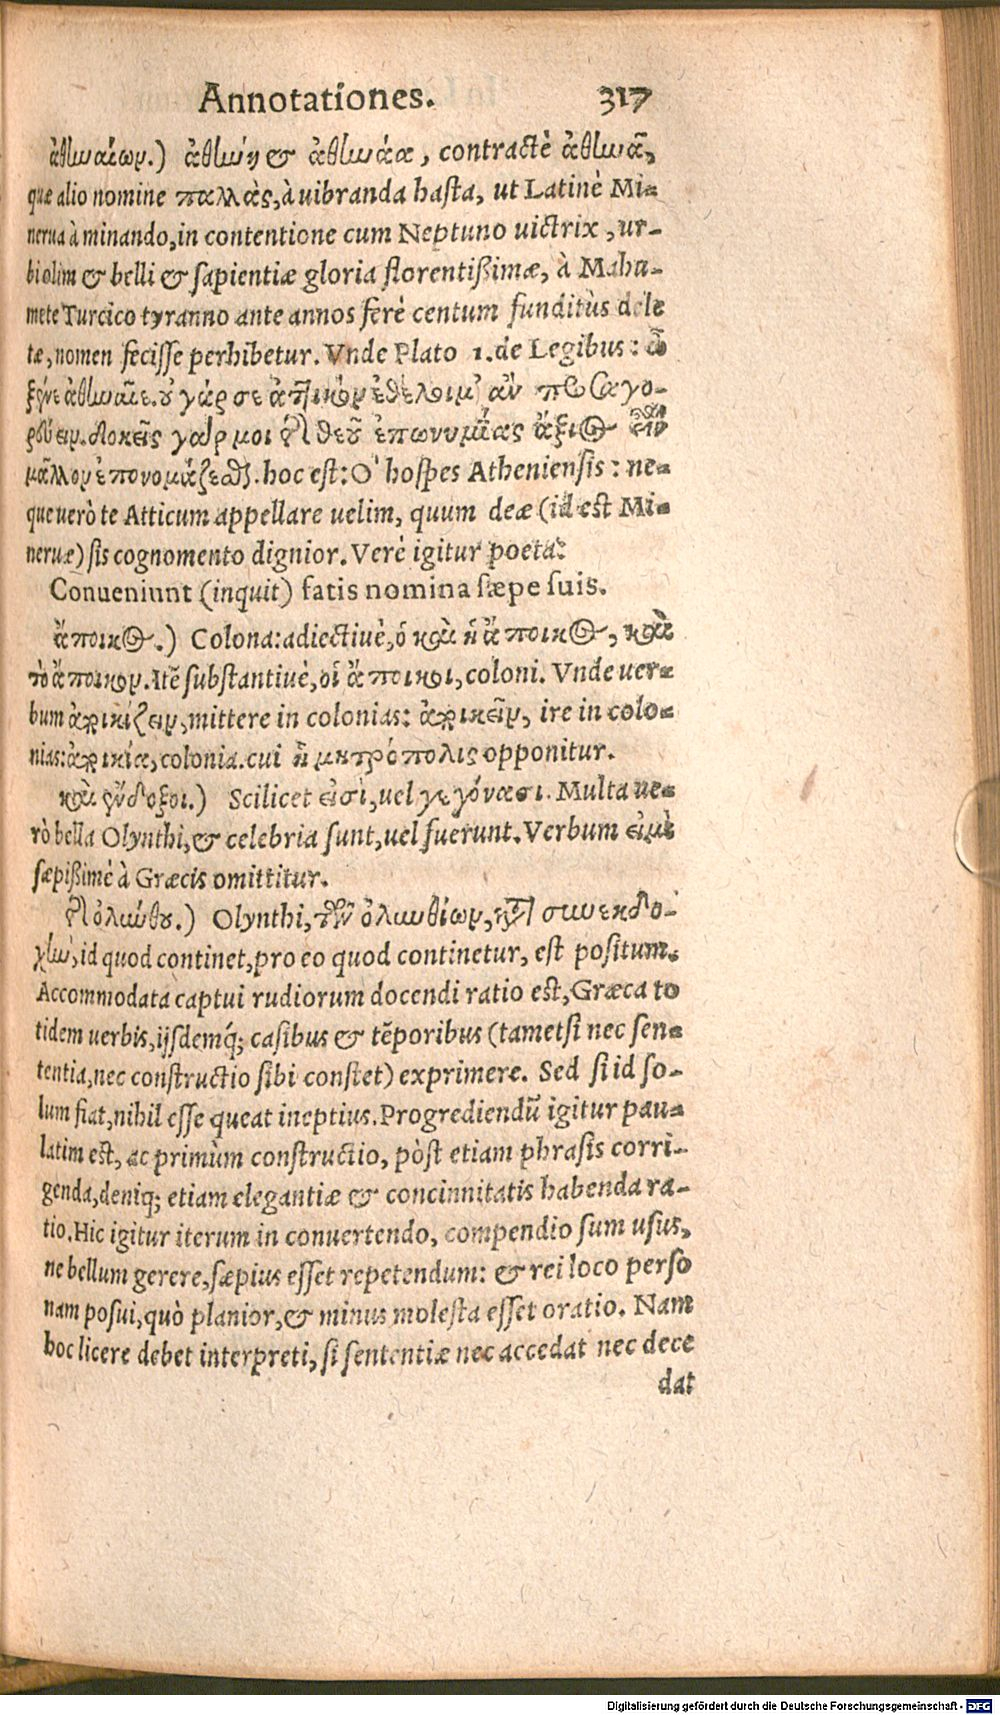 Annotationes. 317
ἀθηναίων.) ἀθήνη & ἀθηνάα, contractè ἀθηνᾶ,
quæ alio nomine παλλὰς, à uibranda hasta, ut Latinè Mi-
nerua à minando, in contentione cum Neptuno uictrix, ur-
bi olim & belli & sapientiæ gloria florentißimæ, à Maha-
mete Turcico tyranno ante annos ferè centum funditùs dele
tæ, nomen fecisse perhibetur. Vnde Plato 1. de Legibus: ὦ
ξένε ἀθηναῖε. οὐ γάρ σε ἀττικὸν ἐθέλοιμ' ἂν προσαγο-
ρεύειν. δοκεῖς γάρ μοι τῆς θεοῦ ἐπωνυμίας ἄξιος εἶναι
μᾶλλον ἐπονομάζεσθαι. hoc est: O' hospes Atheniensis: ne-
que uerò te Atticum appellare uelim, quum deæ (id est Mi-
neruæ) sis cognomento dignior. Verè igitur poeta:
Conueniunt (inquit) fatis nomina sæpe suis.
ἄποικος.) Colona: adiectiuè, ὁ καὶ ἡ ἄποικος, καὶ
τὸ ἄποικον. Itẽ substantiuè, οἱ ἄποικοι, coloni. Vnde uer-
bum ἀποικίζειν, mittere in colonias: ἀποικεῖν, ire in colo-
nias: ἀποικία, colonia. cui ἡ μητρόπολις opponitur.
καὶ ἔνδοξοι.) Scilicet εἰσὶ, uel γεγόνασι. Multa ue-
rò bella Olynthi, & celebria sunt, uel fuerunt. Verbum εἰμὶ
sæpißimè à Græcis omittitur.
τῆς ὀλύνθου.) Olynthi, τῶν ὀλυνθίων, κατὰ συνεκδο-
χὴν, id quod continet, pro eo quod continetur, est positum.
Accommodata captui rudiorum docendi ratio est, Græca to
tidem uerbis, ijsdemq́; casibus & tẽporibus (tametsi nec sen-
tentia, nec constructio sibi constet) exprimere. Sed si id so-
lum fiat, nihil esse queat ineptius. Progrediendũ igitur pau-
latim est, ac primùm constructio, pòst etiam phrasis corri-
genda, deniq; etiam elegantiæ & concinnitatis habenda ra-
tio. Hic igitur iterum in conuertendo, compendio sum usus,
ne bellum gerere, sæpius esset repetendum: & rei loco perso
nam posui, quò planior, & minus molesta esset oratio. Nam
hoc licere debet interpreti, si sententiæ nec accedat nec dece
dat
Digitalisierung gefördert durch die Deutsche Forschungsgemeinschaft - DFG